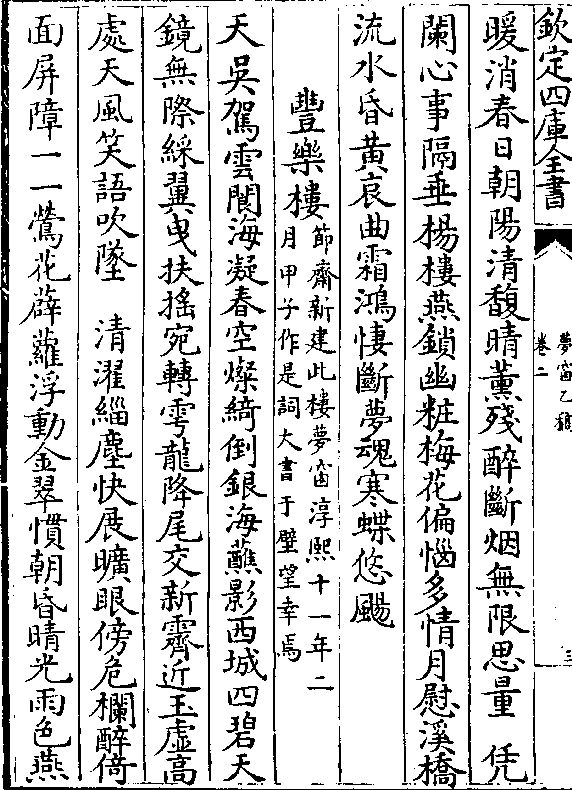 欽定四庫全書
夢窗乙稿
卷二
三
暖消春日朝陽清馥晴薰殘醉斷烟無限思量　凭
闌心事隔垂楊樓燕鎖幽粧梅花偏惱多情月慰溪橋
流水昏黃哀曲霜鴻悽斷夢魂寒蝶悠颺
豐樂樓節齋新建此樓夢窗淳熙十一年二
月甲子作是詞大書于壁望幸焉
天吳駕雲閬海凝春空燦綺倒銀海蘸影西城四碧天
鏡無際綵翼曳扶搖宛轉雩龍降尾交新霽近玉虛高
處天風笑語吹墜　清濯緇塵快展曠眼傍危欄醉倚
面屏障一一鶯花薜蘿浮動金翠慣朝昏晴光雨色燕